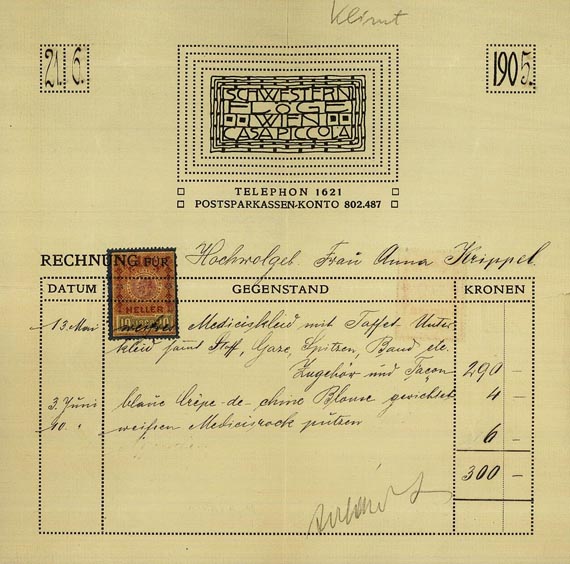 Klimt
21. 6. 1905.
SCHWESTERN
FLÖGE
WIEN
CASA PICCOLA
TELEPHON 1621
POSTSPARKASSEN-KONTO 802.487
RECHNUNG FÜR Hochwolgeb. Frau Anna Krippel.
DATUM GEGENSTAND KRONEN
HELLER
10 10
13. Mai weißes Mediciskleid mit Taffet Unter
kleid sammt Stoff, Gaze, Spitzen, Band etc.
Zugehör und Façon 290 –
3. Juni blaue Crêpe-de-chine Blouse gerichtet 4 –
20. " weißen Medicisrock putzen 6 –
300 –